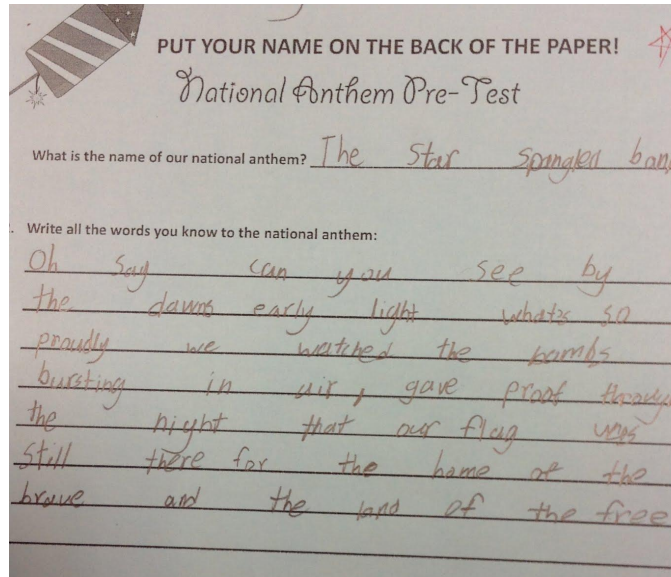 PUT YOUR NAME ON THE BACK OF THE PAPER!
National Anthem Pre-Test
What is the name of our national anthem? The Star Spangled ban
. Write all the words you know to the national anthem:
Oh say can you see by
the dawns early light whats so
proudly we watched the bombs
bursting in air, gave proof through
the night that our flag was
still there for the home of the
brave and the land of the free